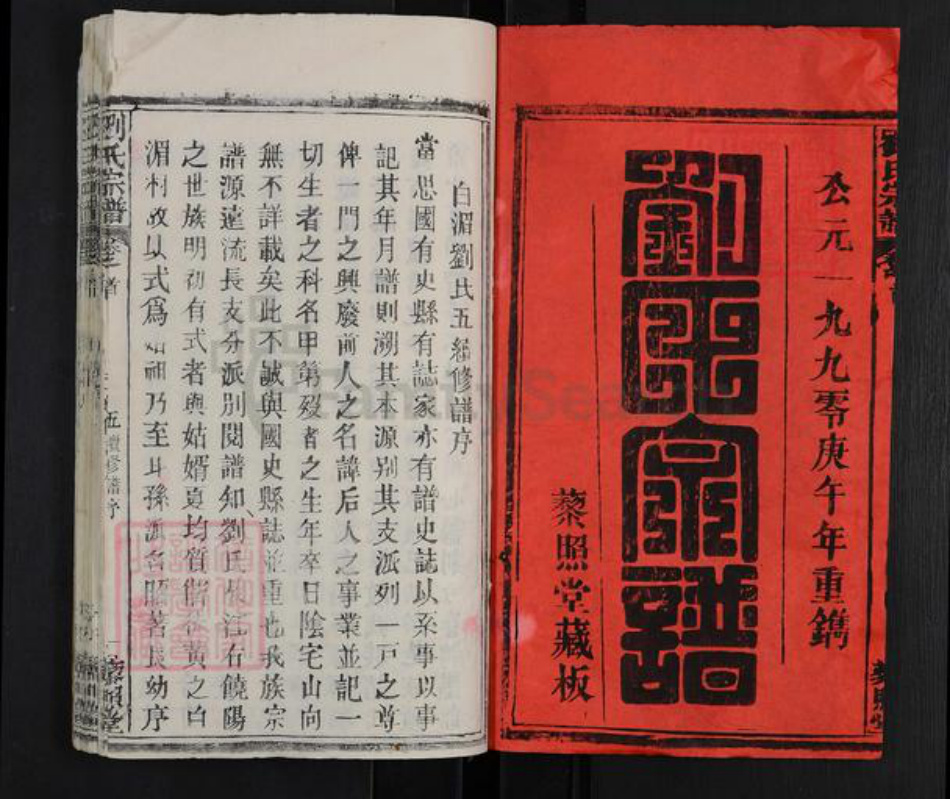 公元一九九零庚午年重鐫
劉氏宗譜
藜照堂藏板
白湄劉氏五續修譜序
當思國有史縣有誌家亦有譜史誌以系事以事
記其年月譜則溯其本源别其支派列一戸之尊
俾一門之興廢前人之名諱后人之事業並記一
切生者之科名甲第殁者之生年卒日陰宅山向
無不詳載矣此不誠與國史縣誌並重也我族宗
譜源遠流長支分派别閱譜知劉氏居江右饒陽
之世族明初有式者與姑婿夏均質偕 黄之白
湄村故以式爲始祖乃至耳孫派名昭茗長幼序
劉氏宗譜
卷之首
五續修譜序
一
藜照堂
FamilySearch